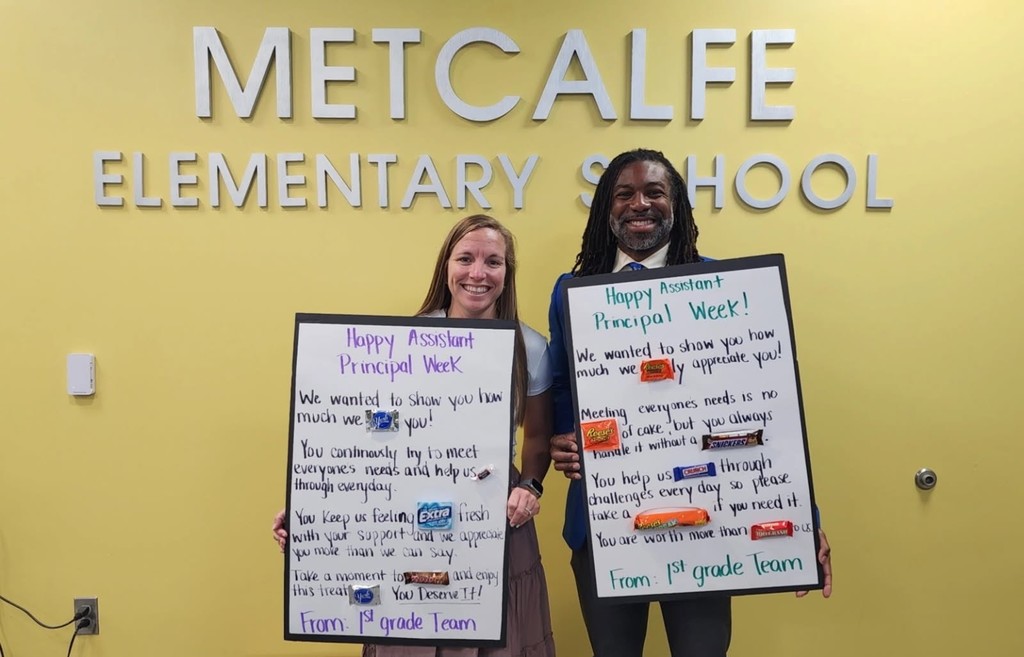 METCALFE
ELEMENTARY SCHOOL
Happy Assistant
Principal Week
We wanted to show you how
much we York you!
You continously try to meet
everyones needs and help us
through everyday.
You keep us feeling Extra fresh
with your support and we appreciate
you more than we can say.
Take a moment to and enjoy
this treat York You Deserve It!
From: 1st grade Team
Happy Assistant
Principal Week!
We wanted to show you how
much we ly appreciate you!
Meeting everyones needs is no
Reese's of cake, but you always
handle it without a SNICKERS
You help us CRUNCH through
challenges every day so please
take a if you need it.
You are worth more than to us.
From: 1st grade Team